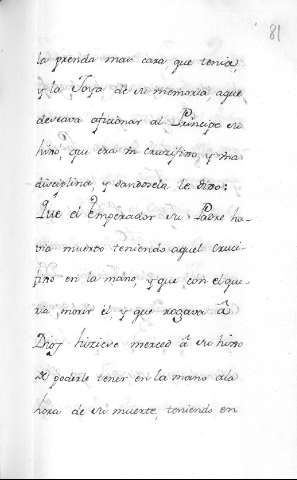 81
la prenda mas cara que tenia,
y la Joya de su memoria, aque
deseava aficionar al Principe su
hijo, que era un crucifijo, y una
disciplina, y dandosela le dijo:
Que el Emperador su Padre ha-
via muerto teniendo aquel cruci-
fijo en la mano, y que con el que-
ria, morir el, y que rogava â
Dios hiziese merced â su hijo
de poderle tener en la mano ala
hora de su muerte, teniendo en